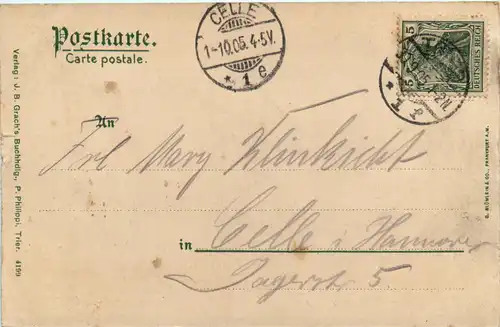 Postkarte.
Carte postale.
CELLE
1-10.05. 4-5V.
* 1 e
5 5
DEUTSCHES REICH
An
Frl Mary Klinksicht
in Celle i. Hannover
Jagerstr 5.
Verlag: J. B. Grach's Buchhdlg., P. Philippi, Trier. 4199